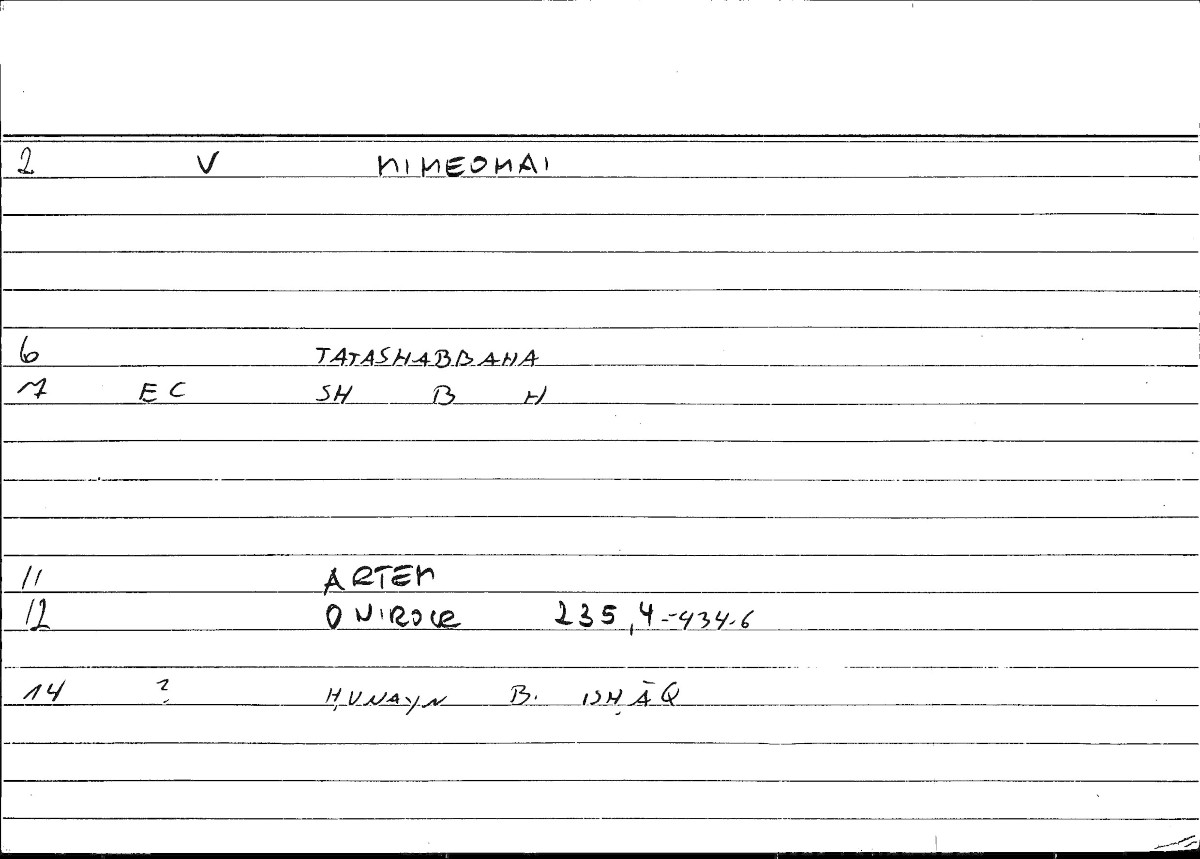 2 V MIMEOMAI
6 TATASHABBAHA
7 EC SH B H
11 ARTEM
12 ONIROCR 235,4=434.6
14 ? ḤUNAYN B. ISḤĀQ